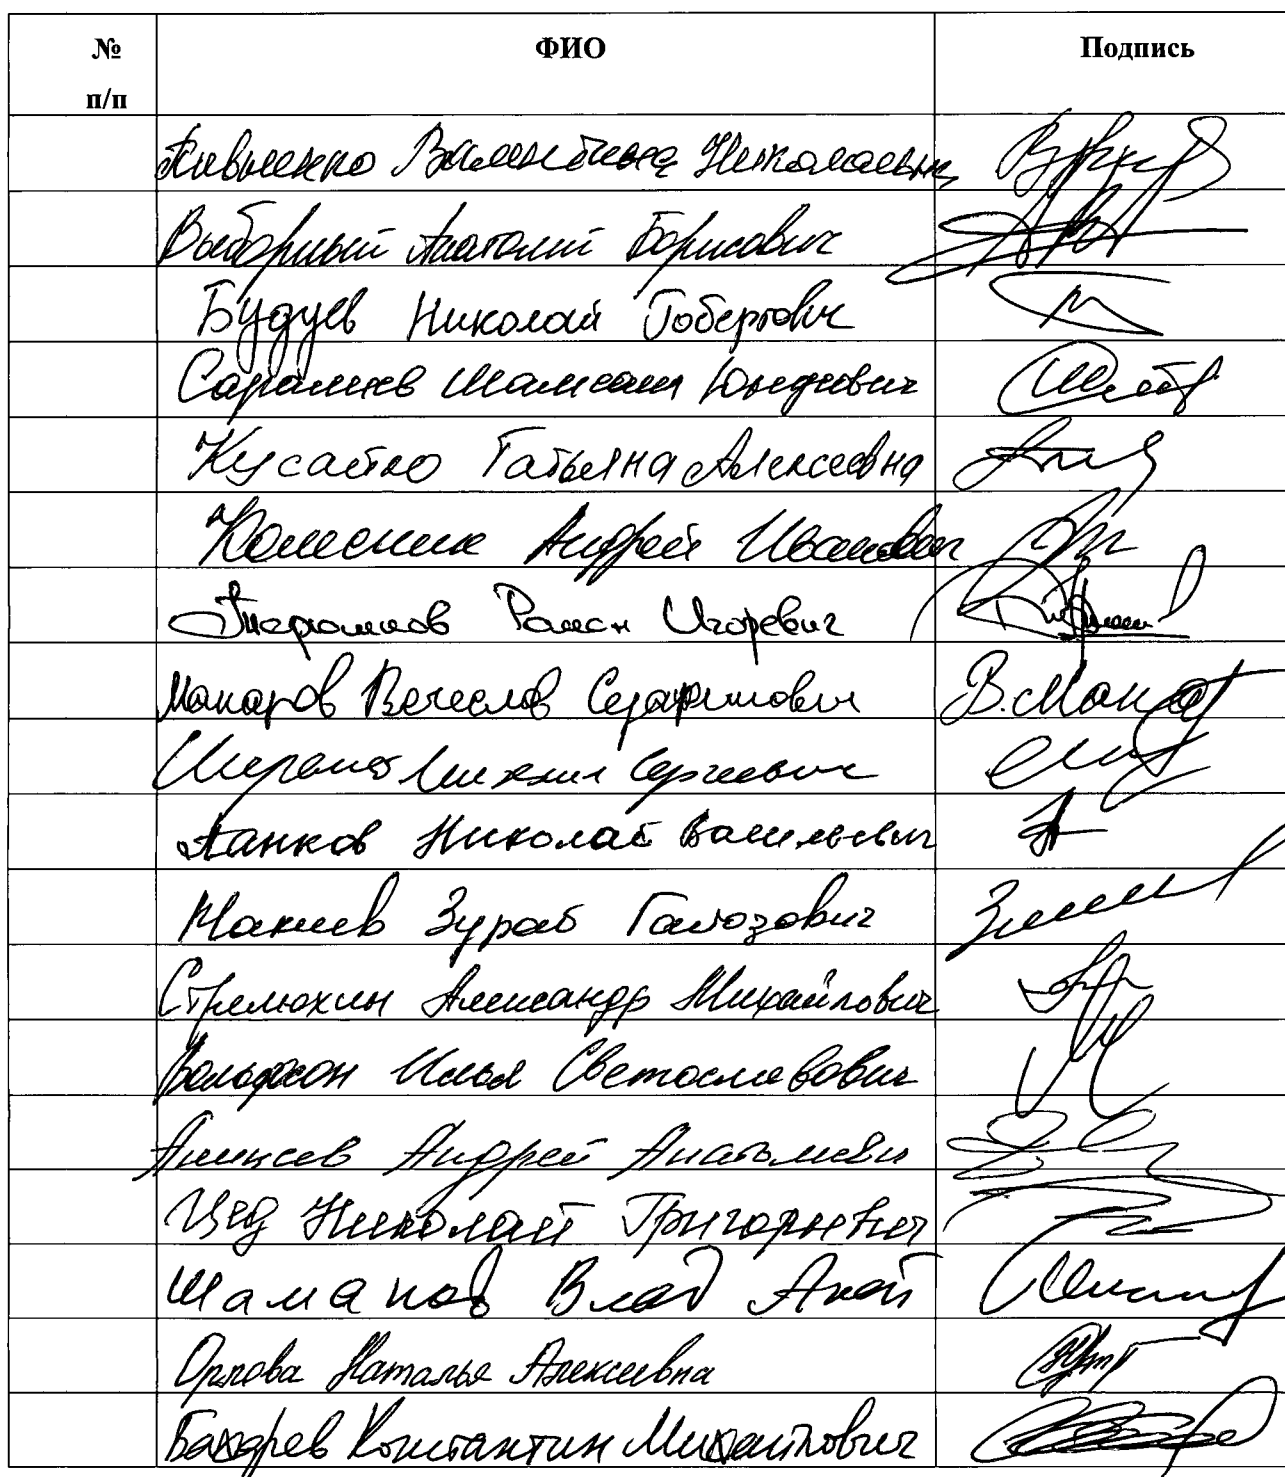 № п/п ФИО Подпись
Пивненко Валентина Николаевна
Выборный Анатолий Борисович
Будуев Николай Робертович
Саралиев Шамсаил Юнадиевич
Кусайко Татьяна Алексеевна
Колесник Андрей Иванович
Терюшков Роман Игоревич
Макаров Вячеслав Серафимович
Шеремет Михаил Сергеевич
Панков Николай Васильевич
Макиев Зураб Гайозович
Стрелюхин Александр Михайлович
Вольфсон Илья Светославович
Анисеев Андрей Анатольевич
Цед Николай Григорьевич
Шаманов Влад Анат
Орлова Наталья Алексеевна
Бахарев Константин Михайлович